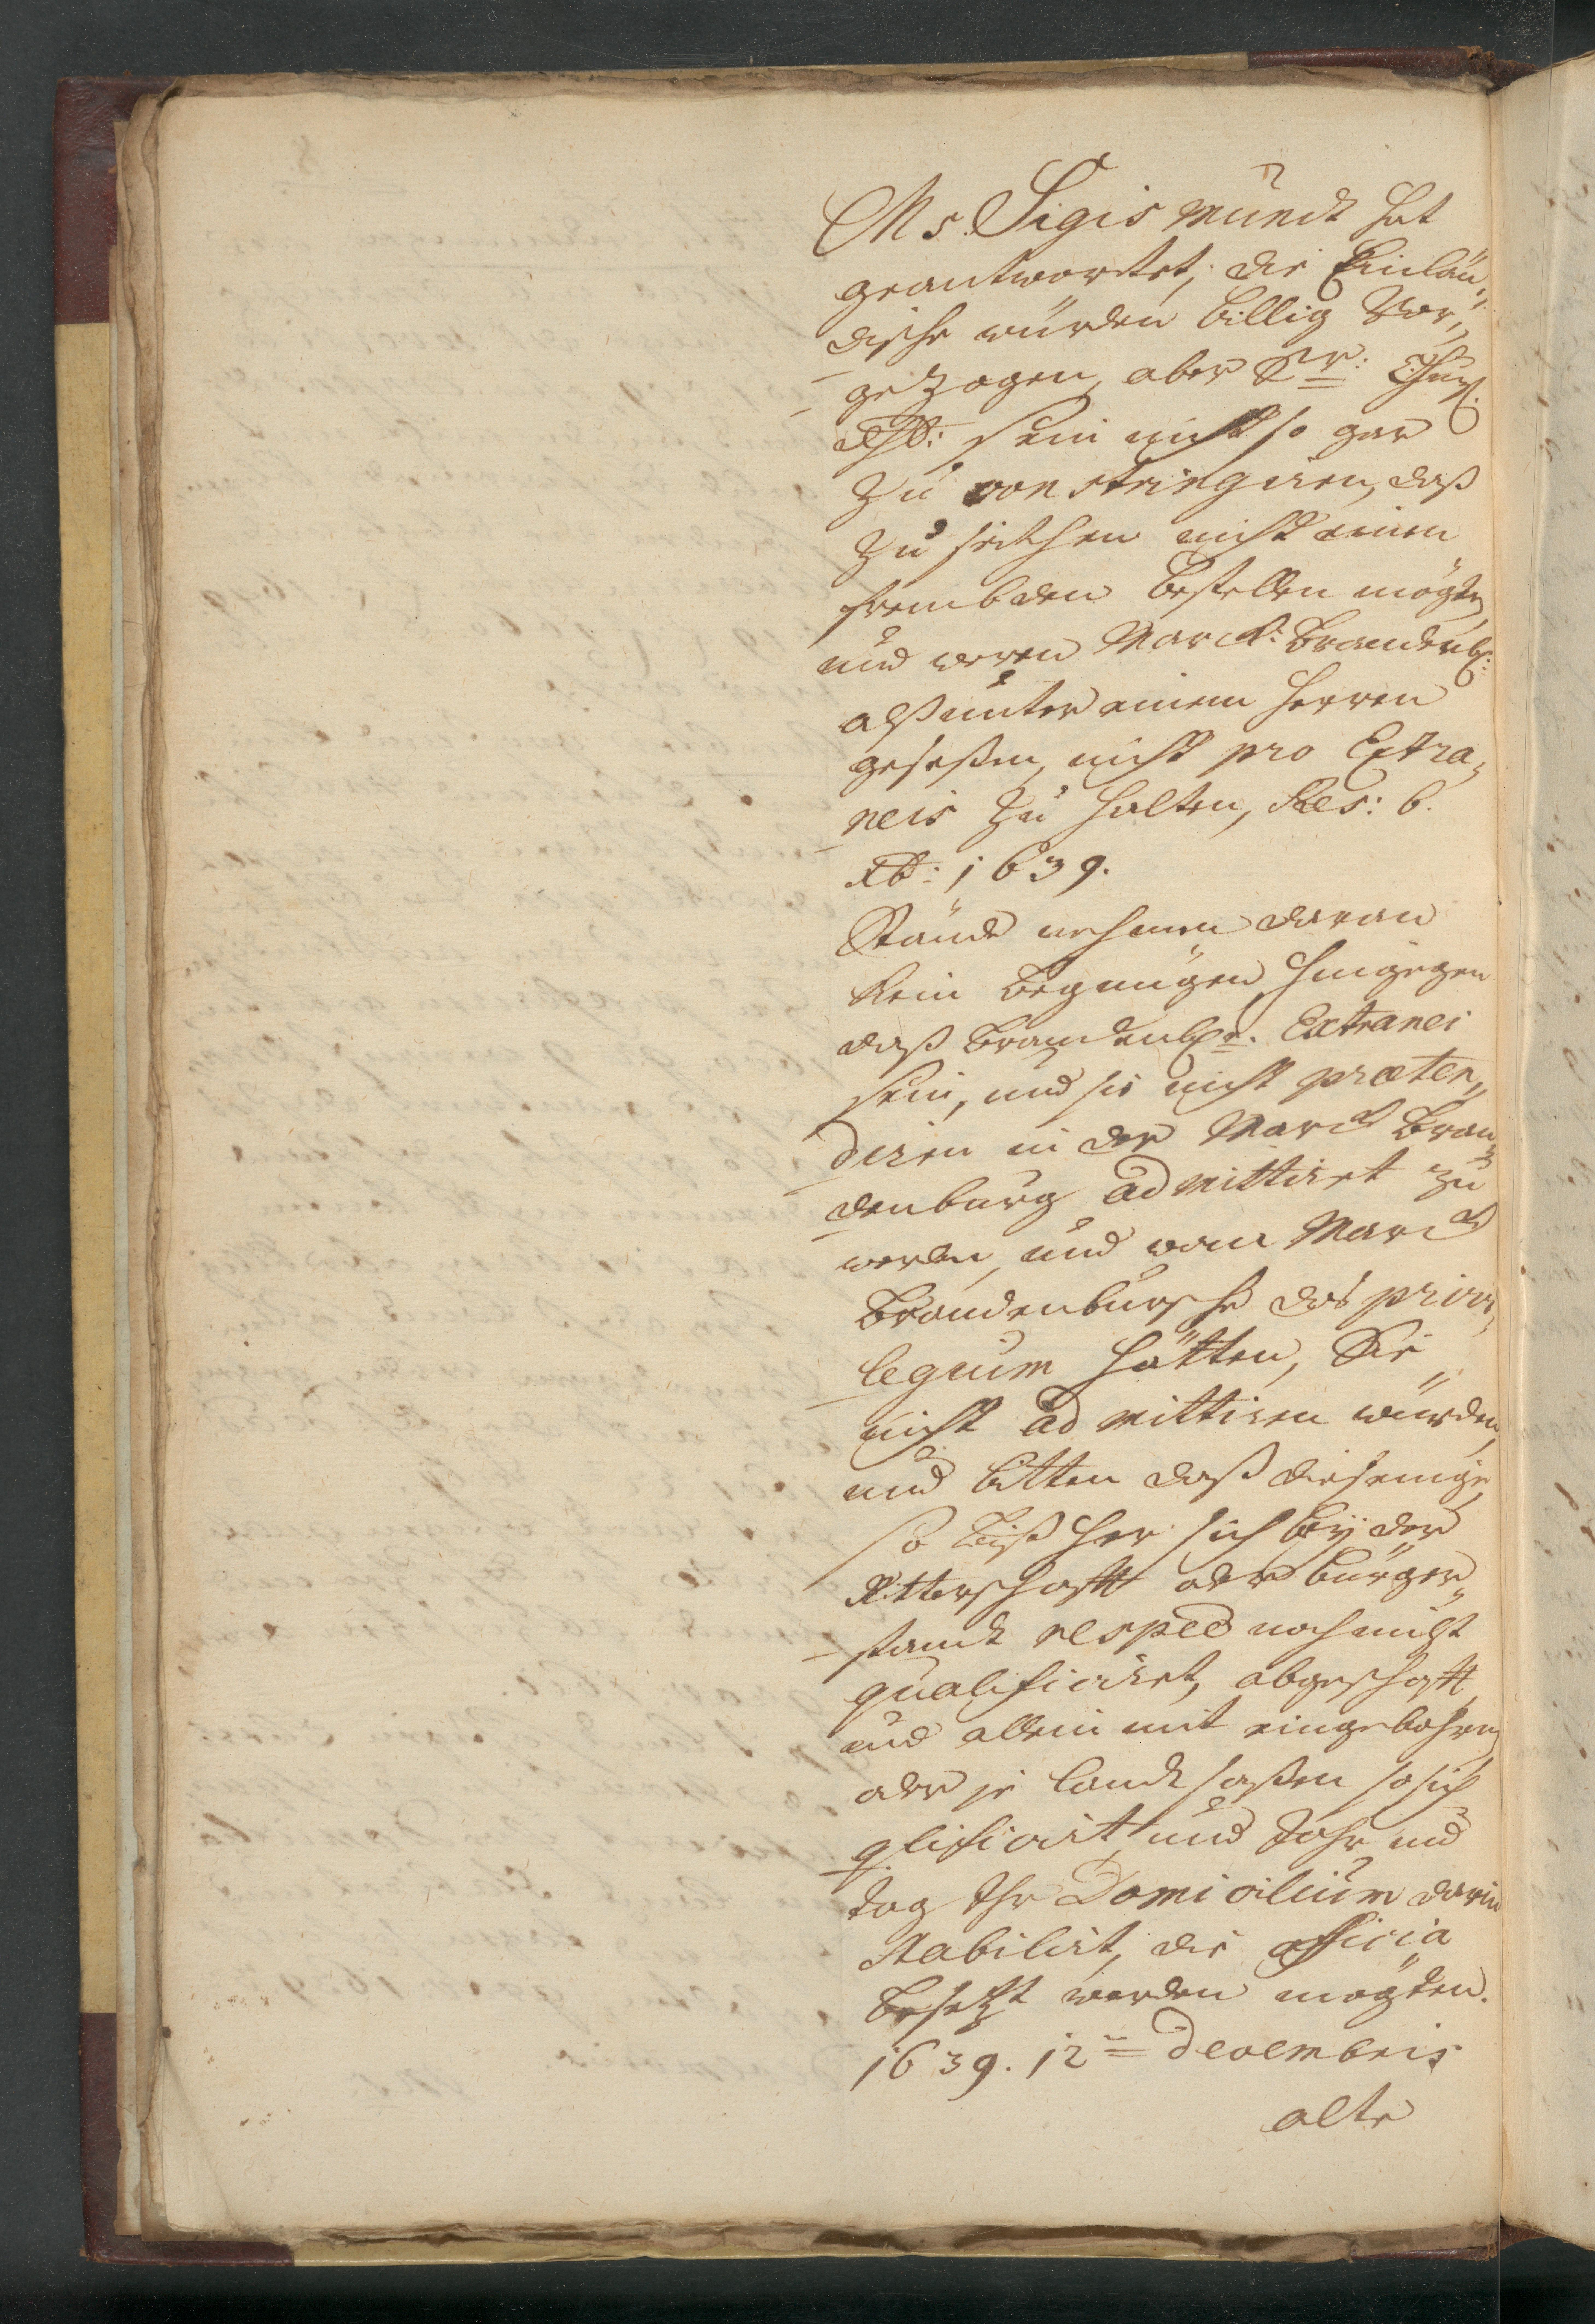 Ms. Sigismundt hat
geantwortet, die Einlän„
dische würden billig Vor„
gezogen, aber Sr: Churf.
dhl: sein nicht so gar
zu constringiren, daß
zu solchen nicht einen
frembden bestellen mögte,
und weren Marck: Brandenb:
alß unter einem Herren
geseßen, nicht pro Extra„
neis zu halten, Res: 6.
Xb: 1639.
Stände nehmen daran
kein begnügen, hingegen
daß Brandenb: Extranei
sein, und sie nicht præten„
diren in der Marck Bran„
denburg admittiret zu
werden, und wan Marck
Brandenbursche das privi„
legium hätten, Sie
nicht admittiren würden,
und bitten daß diejenige,
so bißher sich bey der
Ritterschafft oder bürger„
standt respec noch nicht
qualificiret, abgeschafft,
und allein mit eingebohren,
oder je landtsaßen so sich
qlificirt und Jahr und
tag Ihr Domicilium darin
stabilirt, die officia
besetzt werden mögten.
1639. 12= Decembris
alte